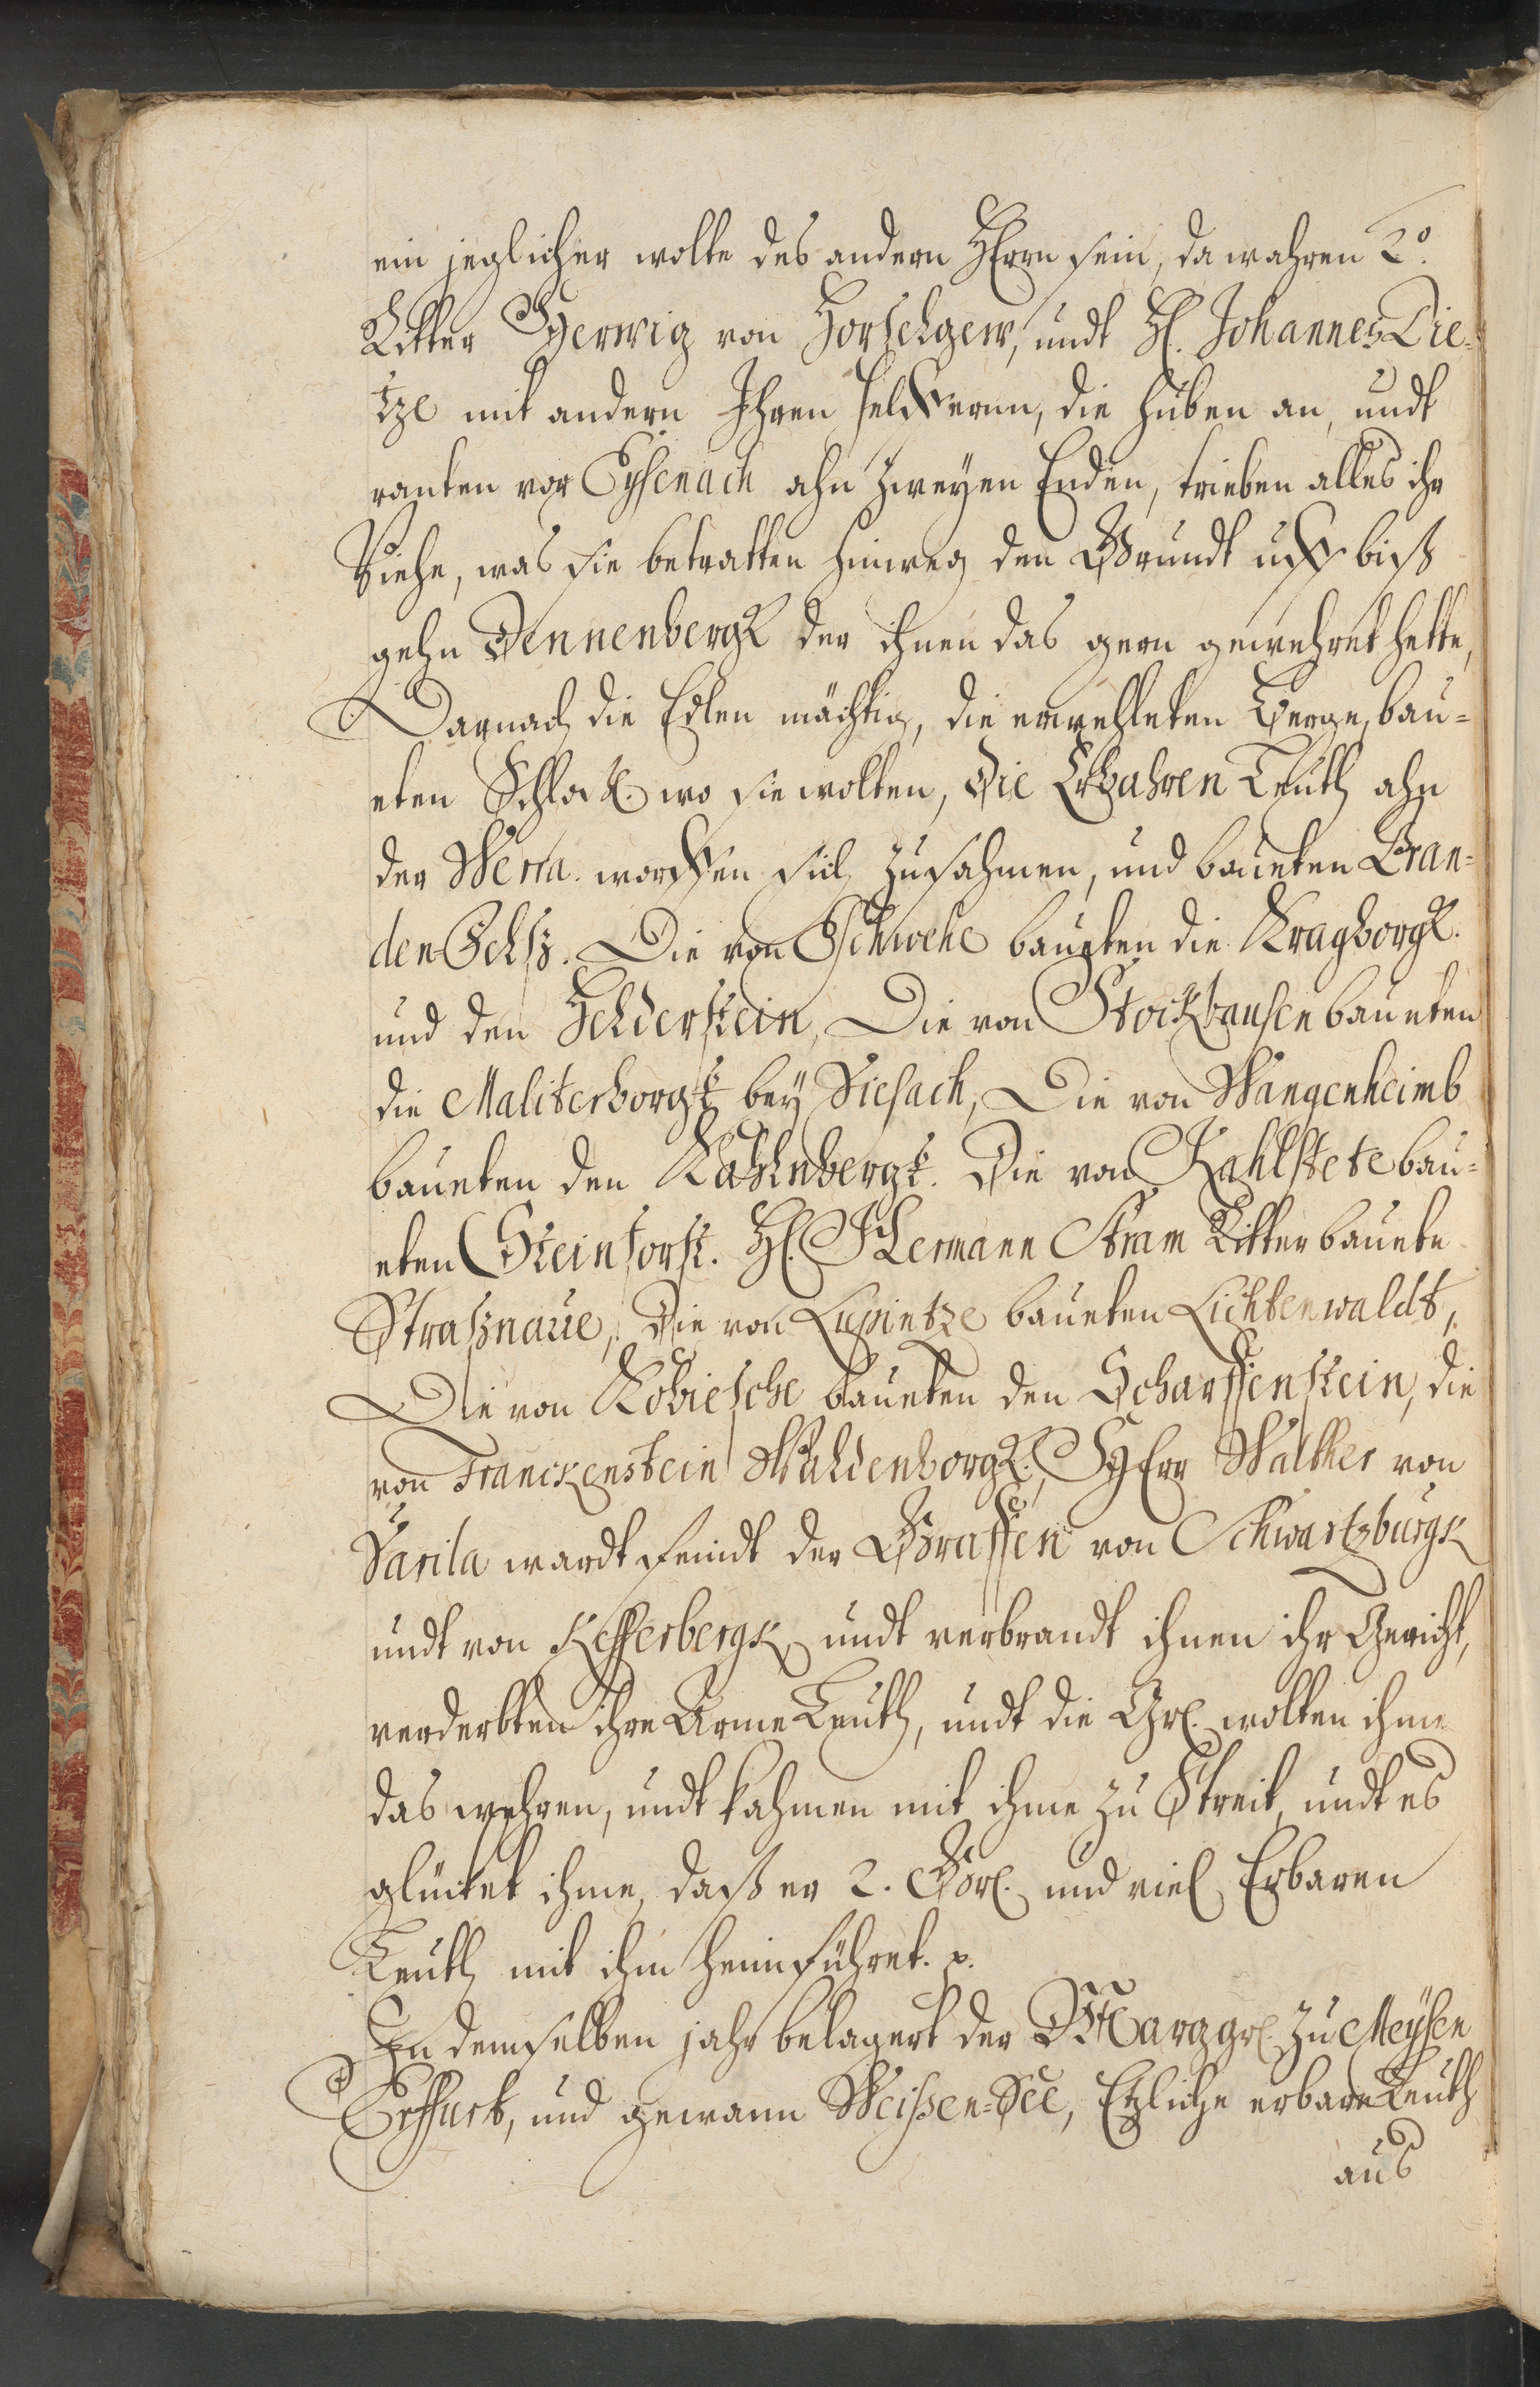 ein jeglicher wolte des andern HErrn sein, da wahren 2.
Ritter Herwig von Horselgew, undt H. Johannes Die-
tze mit andern Ihren helffernn, die huben an, undt
ranten vor Eysenach ahn zweyen Enden, trieben alles ihr
Viehe, was sie betratten hinweg den Grundt uff biß
gehn Tennenbergk der ihnen das gern gewehret hette,
Darnach die Edlen mächtig, die erwehleten Berge, bau=
eten Schloß. wo sie wolten, Die Erbahren Leuth ahn
der Werra. worffen sich zusahmen, und baueten Bran=
den Felß. Die von Eschwehe baueten die Kragborgk.
und den Helderstein, Die von Stockhausen baueten
die Maliterborgk bey Siesach, Die von Wangenheimb
baueten den Kahlnbergk. Die von Kahlstete bau=
eten Steinforst. H. Hermann Stram Ritter bauete
Straßnaue, Die von Lupintze baueten Lichtenwaldt,
Die von Kobiesche baueten den Scharffenstein, die
von Franckenstein Waldenborgk. HErr Walther von
Varila wardt feindt der Graffen von Schwartzburgk
undt von Kefferbergk undt verbrandt ihnen ihr Gericht,
verderbten ihre Arme Leuth, undt die Gr. wolten ihme
das wehren, undt kahmen mit ihme zu Streit, undt es
glücket ihme, daß er 2. Gr. und viel Erbaren
Leuth mit ihm heimführet.
In demselben jahr belagert der Marggr. zu Meysen
Erffurt, und gewann Weissen=See, Etzliche erbare Leuth
aus